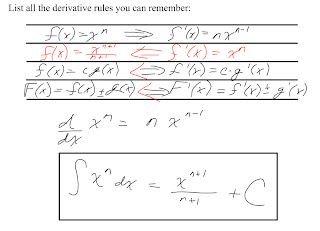 List all the derivative rules you can remember:
f(x)=xⁿ ⇒ f'(x)=nxⁿ⁻¹
f(x)=xⁿ⁺¹/n+1 ⇐ f'(x)=xⁿ
f(x)=cg(x) ⇔ f'(x)=c·g'(x)
F(x)=f(x)±g(x) ⇔ F'(x)=f'(x)±g'(x)
d/dx xⁿ = n xⁿ⁻¹
∫xⁿdx = xⁿ⁺¹/n+1 + C